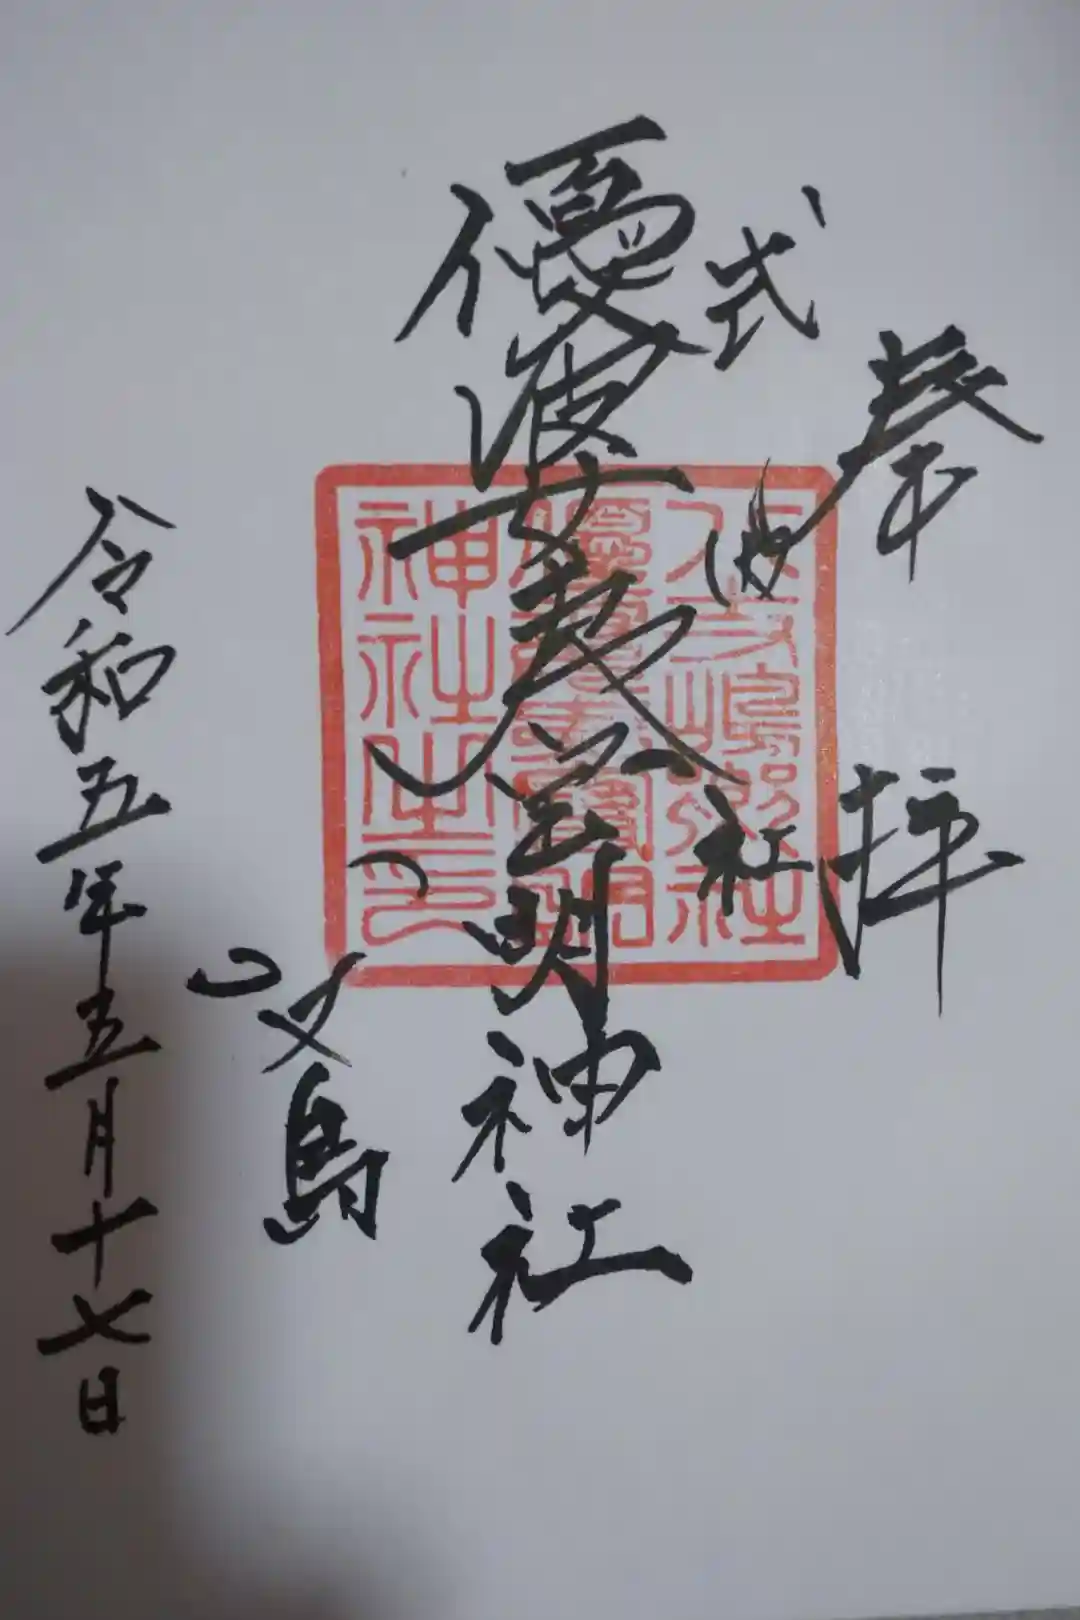 奉拝
式内社
優婆夷宝明神社
八丈島
令和五年五月十七日
八丈嶋郷社
優婆夷寶明
神社之印